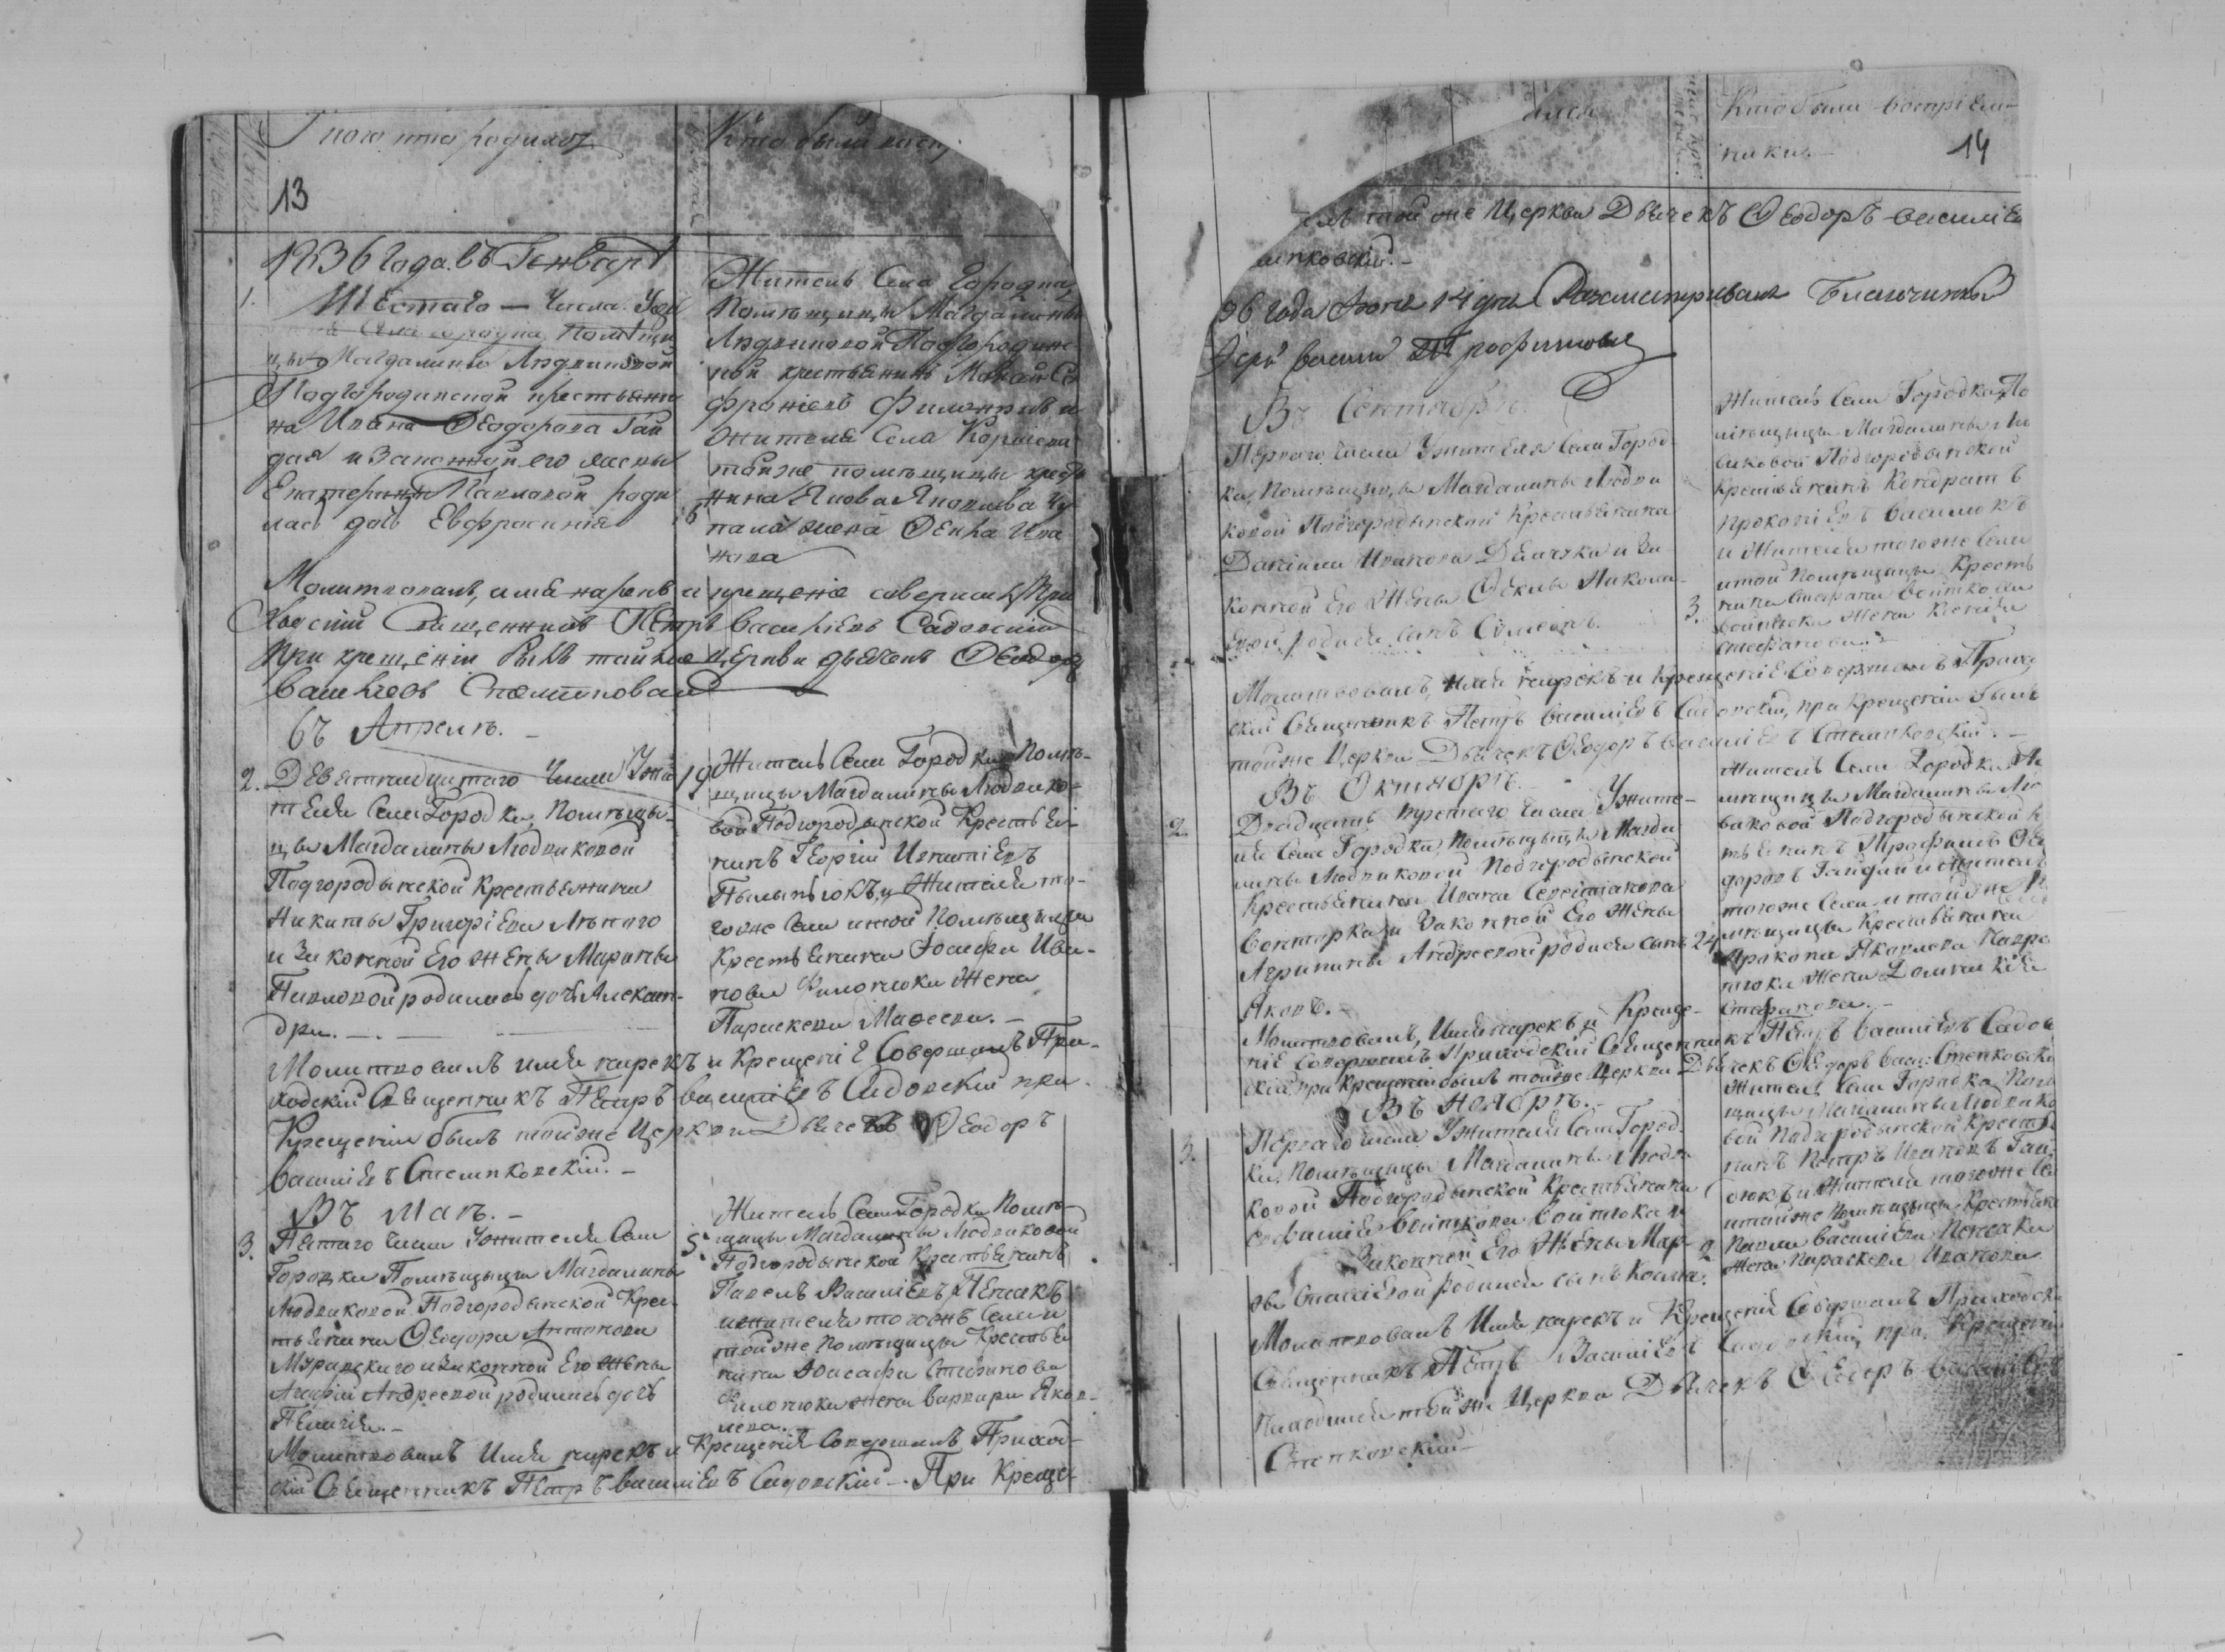 кто родился
Кто были
13
1836 года въ Генваръ
1.
Шестаго — Числа У жи
Села Городка помѣщи
цы Магдалины Людвиковой
Подгородинской крестьяни
на Ивана Ѳеодорова Гай
дая и Законной его жены
Екатерины Павловой роди
лась дочь Евфросинія
6
Житель Села Городка
Помѣщицы Магдалины
Людвиковой Подгородинс
кой крестьянинъ
и
жителя Села
тойже помѣщицы кресть
нина Якова
жена Ѳекла Ива
нова
Молитвовалъ, имя нарекъ и крещеніе совершилъ При
ходскій Священникъ Петръ Василіевъ Садовскій
При крещеніи былъ тойже церкви дьячекъ Ѳеодоръ
Василіевъ
въ Апрелѣ. —
2.
Девятнадцатаго Числа У жи
теля Села Городка, Помѣщи-
цы Магдалины Людвиковой
Подгородынской Крестьянина
Никиты Григоріева
и Законной Его Жены Марины
Павловой родилась дочь Алексан-
дра. —
19
Житель Села Городка Помѣ-
щицы Магдалины Людвико-
вой Подгородынской Крестья-
нинъ Георгій Игнатіевъ
и Жителя то-
гоже Села и той Помѣщицы
Крестьянина Іосифа Ива-
нова Филонюка Жена
Параскева —
Молитвовалъ имя нарекъ и Крещеніе Совершилъ При-
ходскій Священникъ Петръ Василіевъ Садовскій при
Крещеніи былъ тойже Церкви Дьячекъ Ѳеодоръ
Василіевъ —
Въ Маѣ. —
3.
Пятаго Числа У жителя Села
Городка Помѣщицы Магдалины
Людвиковой Подгородынской Крес-
тьянина Ѳеодора Антонова
Муравскаго и Законной Его Жены
Агафіи Андреевой родилась дочь
Пелагія. —
5.
Житель Села Городка Помѣ-
щицы Магдалины Людвиковой
Подгородынской Крестьянинъ
Павелъ Василіевъ
и жителя тогожъ Села и
тойже Помѣщицы Крестья
нина Іоасафа Стефанова
Филонюка жена Варвара Яков-
лева. —
Молитвовалъ Имя нарекъ и Крещеніе Совершилъ Приход-
скій Священникъ Петръ Василіевъ Садовскій — При Креще-
Кто были воспріем-
ники. —
14
той же Церкви Дьячекъ Ѳеодоръ Василіев
36 года Іюня 14 дня Разсматривалъ Благочинный
Въ Сентябрѣ.
Перваго Числа У жителя Села Город-
ка, Помѣщицы Магдалины Людви
ковой Подгородынской Крестьянина
Даніила Иванова и За-
конной Его Жены Ѳеклы Никола-
евой родился сынъ Симеонъ.
3.
Житель Села Городка, По
мѣщицы Магдалины Лю
виковой Подгородынской
Крестьянинъ Кондратъ
Прокопіевъ Василюкъ
и Жителя тогоже Села
и той Помѣщицы Кресть
нина Стефана Войткова
Войтюка Жена Ксенія
Стефанова. —
Молитвовалъ, имя нарекъ и Крещеніе Совершилъ Приход
скій Священникъ Петръ Василіевъ Садовскій, при Крещеніи былъ
тойже Церкви Дьячекъ Ѳеодоръ Василіевъ —
Въ Октябрѣ. —
2
Двадцать третаго Числа У жите-
ля Села Городка, Помѣщицы Магда
лины Людвиковой Подгородынской
Крестьянина Ивана
и Законной Его Жены
Агрипины Андреевой родился сынъ
Яковъ. —
24
Житель Села Городка По
мѣщицы Магдалины Лю
виковой Подгородынской К
тьянинъ Трофимъ Ѳео
доровъ Гайдай и Житель
тогоже Села и тойже По
мѣщицы Крестьянина
Прокопа Яковлева
Жена Домникія
Стефанова. —
Молитвовалъ, Имя нарекъ и Креще-
ніе Совершилъ Приходскій Священникъ Петръ Василіевъ Садов
скій, при Крещеніи былъ тойже Церкви Дьячекъ Ѳеодоръ
Въ Ноябрѣ. —
3.
Перваго числа У жителя Села Город
ка, Помѣщицы Магдалины Людви
ковой Подгородынской Крестьянина
Войткова Войтюка и
Законной Его Жены Мар-
родился сынъ Косма.
2
Житель Села Городка Помѣ
щицы Магдалины Людвико
вой Подгородынской Кресть
нинъ Петръ Ивановъ
и Жителя тогоже Се
и тойже Помѣщицы Крестьяни
Павла Василіева
Жена Параскева Иванова
Молитвовалъ Имя нарекъ и Крещеніе Совершилъ Приходски
Священникъ Петръ Василіевъ Садовскій, при Крещеніи
находился тойже Церкви Дьячекъ Ѳеодоръ Василіевъ